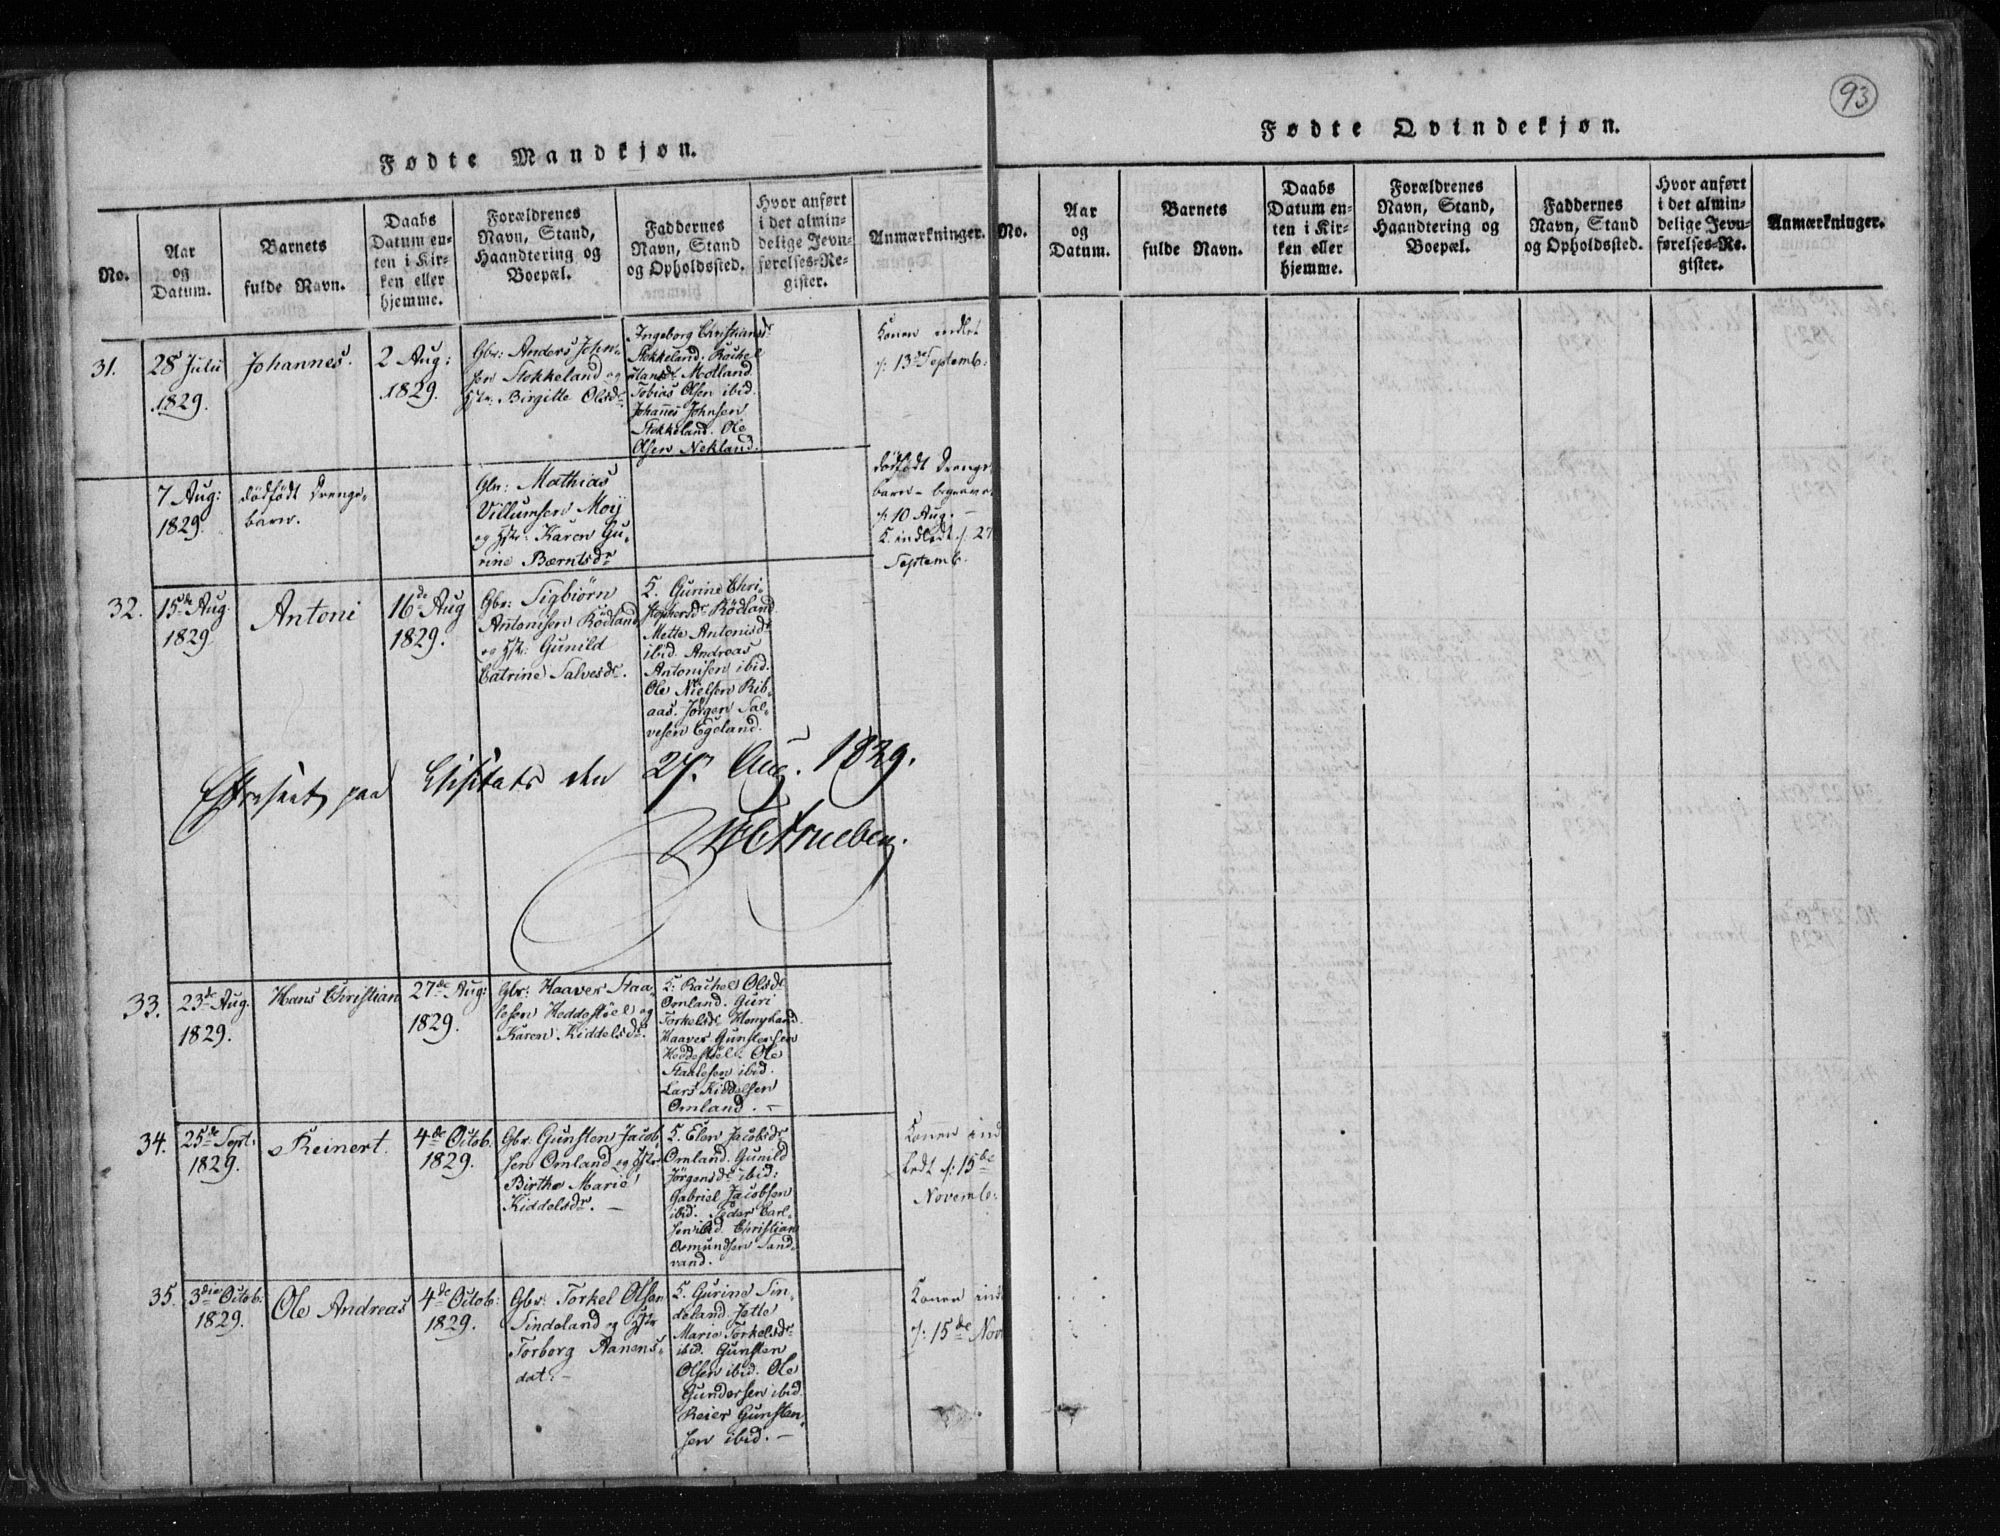 93
Fødte Mandkjøn.
No.
Aar
og
Datum.
Barnets
fulde Navn.
Daabs
Datum en-
ten i Kir-
ken eller
hjemme.
Forældrenes
Navn, Stand,
Haandtering og
Boepæl.
Faddernes
Navn, Stand
og Opholdssted.
Hvor anført
i det almin-
delige Jevn-
førelses-Re-
gister.
Anmærkninger.
31.
28 Julii
1829.
Johannes.
2 Aug:
1829.
Gbr: Anders John-
sen Stokkeland og
Hstr: Birgitte Olsdr.
Ingeborg Christiansdr
Stokkeland. Rachel
Hansdr Motland
Tobias Olsen ibid.
Johañes Johnsen
Stokkeland. Ole
Olsen Nekland.
Konen indlet
/: 13de Septemb:
7 Aug:
1829.
dödfödt Drenge-
barn.
Gbr: Mathias
Villumsen Moij
og Hstr: Karen Gu-
rine Bærntsdr
dödfödt Drenge-
barn - begravet
/: 10 Aug. -
K. indledt /: 27
Septemb.
32.
15de Aug.
1829
Antoni
16de Aug
1829.
Gbr: Sigbiörn
Antonisen Rödland
og Hstr: Gunild
Catrine Salvesdr.
K. Gurine Chri-
stophersdr Rödland
Mette Antonisdr
ibid. Andreas
Antonisen ibid.
Ole Nielsen Rib-
aas. Jörgen Sal-
vesen Egeland.
Efterseet paa Visitats den 27. Aug. 1829.
33.
23de Aug.
1829.
Hans Christian
27de Aug:
1829.
Gbr: Haaver Staa-
lesen Heddestöel og
Karen Kiddelsdr.
K: Rachel Olsdr
Omland. Guri
Torkelsdr
Haaver Gunstensen
Heddestöel. Ole
Staalesen ibid.
Lars Kiddelsen
Omland. -
34.
25de Sept:
1829.
Reinert.
4de Octob:
1829.
Gbr: Gunsten Jacob-
sen Omland og Hstr
Birthe Marie
Kiddelsdr. -
K. Elen Jacobsdr
Omland. Gunild
Jörgensdr ibid:
Gabriel Jacobsen
ibid. Peder Carl-
sen ibid. Christian
Osmundsen Sand-
vand.
Konen ind
ledt /: 15de
Novemb:
35.
3die Octob:
1829.
Ole Andreas
4de Octob:
1829.
Gbr: Torkel Olsen
Sindeland og Hstr
Torborg Aanens-
dat: -
K. Gurine Sin-
deland Jette
Marie Torkelsdr
ibid. Gunsten
Olsen ibid. Ole
Gundersen ibid.
Reier Gunsten-
sen ibid. -
Konen ind
/: 15de Nov
Fødte Qvindekjøn.
No.
Aar
og
Datum.
Barnets
fulde Navn.
Daabs
Datum en-
ten i Kir-
ken eller
hjemme.
Forældrenes
Navn, Stand,
Haandtering og
Boepæl.
Faddernes
Navn, Stand
og Opholdssted.
Hvor anført
i det almin-
delige Jevn-
førelses-Re-
gister.
Anmærkninger.